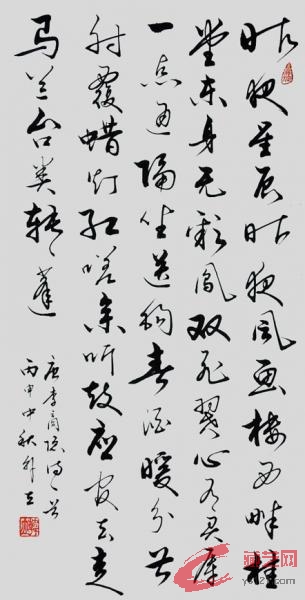 昨夜星辰昨夜风画楼西畔桂
堂东身无彩凤双飞翼心有灵犀
一点通隔坐送钩春酒暖分曹
射覆蜡灯红嗟余听鼓应官去走
马兰台类转蓬
唐李商隐诗
丙申中秋